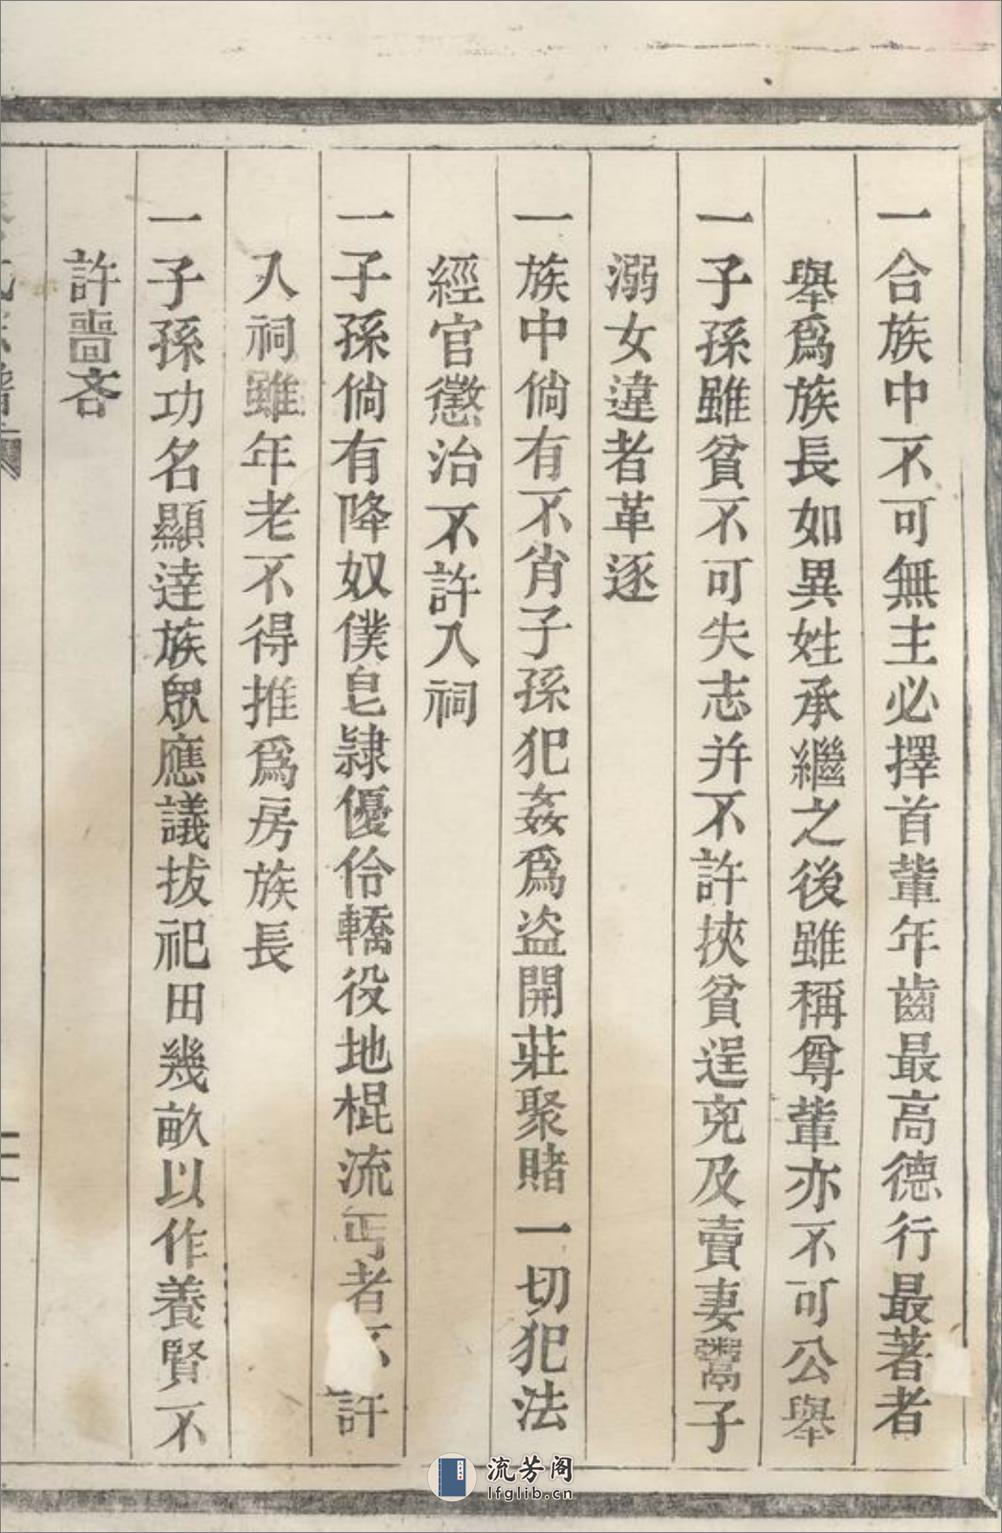 一合族中不可無主必擇首輩年齒最高德行最著者
舉爲族長如異姓承繼之後雖稱尊輩亦不可公舉
一子孫雖貧不可失志并不許挾貧逞兇及賣妻鬻子
溺女違者革逐
一族中倘有不肖子孫犯姦爲盗開莊聚賭一切犯法
經官懲治不許入祠
一子孫倘有降奴僕皂隷優伶轎役地棍流丐者不許
入祠雖年老不得推爲房族長
一子孫功名顯達族眾應議拔祀田幾畝以作養賢不
許嗇吝
二
流芳阁
lfglib.cn